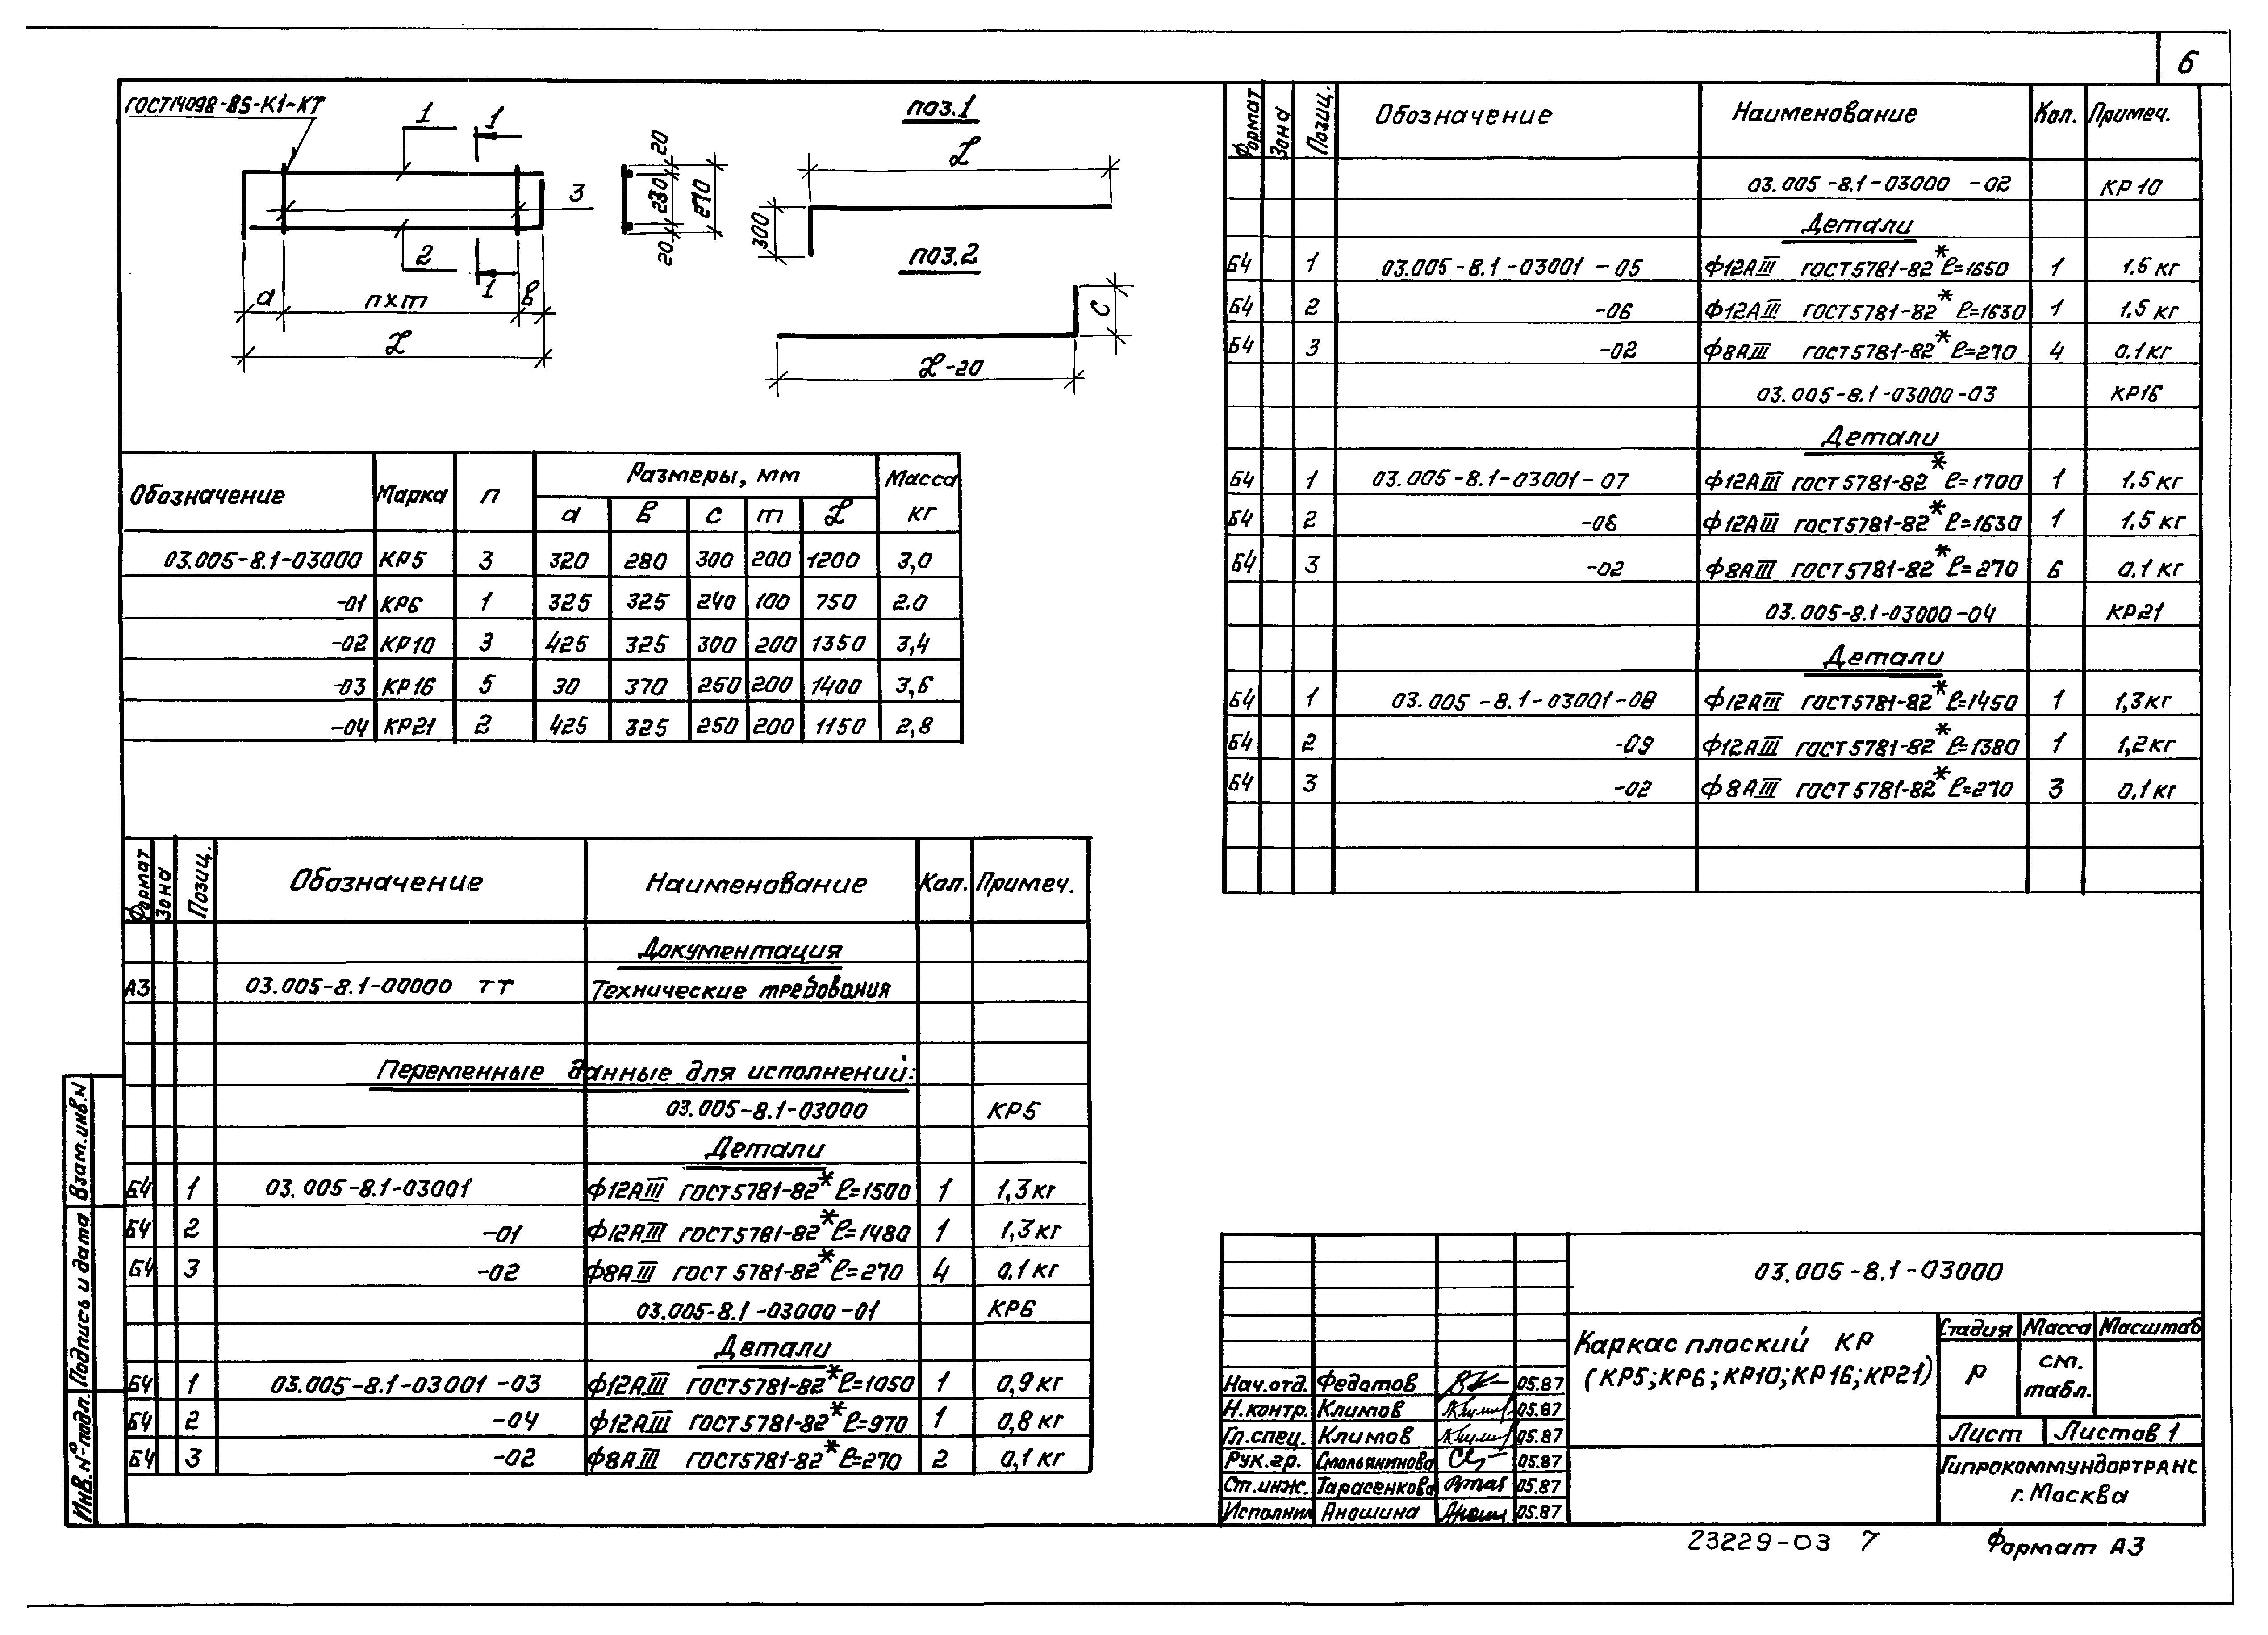 6
ГОСТ14098-85-К1-КТ
1
1
3
2
1
а
n×m
в
ℒ
20
230
270
20
поз.1
ℒ
300
поз.2
с
ℒ-20
Обозначение Марка n Размеры, мм Масса кг
а в с m ℒ
03.005-8.1-03000 КР5 3 320 280 300 200 1200 3,0
-01 КР6 1 325 325 240 100 750 2.0
-02 КР10 3 425 325 300 200 1350 3,4
-03 КР16 5 30 370 250 200 1400 3,6
-04 КР21 2 425 325 250 200 1150 2,8
Формат Зона Позиц. Обозначение Наименование Кол. Примеч.
Документация
А3 03.005-8.1-00000 ТТ Технические требования
Переменные данные для исполнений:
03.005-8.1-03000 КР5
Детали
Б4 1 03.005-8.1-03001 Ф12АIII ГОСТ5781-82* ℓ=1500 1 1,3кг
Б4 2 -01 Ф12АIII ГОСТ5781-82* ℓ=1480 1 1,3кг
Б4 3 -02 Ф8АIII ГОСТ 5781-82* ℓ=270 4 0.1кг
03.005-8.1-03000-01 КР6
Детали
Б4 1 03.005-8.1-03001-03 Ф12АIII ГОСТ5781-82* ℓ=1050 1 0,9кг
Б4 2 -04 Ф12АIII ГОСТ5781-82* ℓ=970 1 0,8кг
Б4 3 -02 Ф8АIII ГОСТ5781-82* ℓ=270 2 0,1кг
Формат Зона Позиц. Обозначение Наименование Кол. Примеч.
03.005-8.1-03000 -02 КР10
Детали
Б4 1 03.005-8.1-03001-05 Ф12АIII ГОСТ5781-82* ℓ=1650 1 1.5кг
Б4 2 -06 Ф12АIII ГОСТ5781-82* ℓ=1630 1 1.5кг
Б4 3 -02 Ф8АIII ГОСТ5781-82* ℓ=270 4 0.1кг
03.005-8.1-03000-03 КР16
Детали
Б4 1 03.005-8.1-03001-07 Ф12АIII ГОСТ5781-82* ℓ=1700 1 1.5кг
Б4 2 -06 Ф12АIII ГОСТ5781-82* ℓ=1630 1 1.5кг
Б4 3 -02 Ф8АIII ГОСТ5781-82* ℓ=270 6 0.1кг
03.005-8.1-03000-04 КР21
Детали
Б4 1 03.005-8.1-03001-08 Ф12АIII ГОСТ5781-82* ℓ=1450 1 1,3кг
Б4 2 -09 Ф12АIII ГОСТ5781-82* ℓ=1380 1 1,2кг
Б4 3 -02 Ф8АIII ГОСТ5781-82* ℓ=270 3 0,1кг
Взам.инв.N
Подпись и дата
Инв.N°подл.
03.005-8.1-03000
Каркас плоский КР
(КР5;КР6;КР10;КР16;КР21)
Стадия Масса Масштаб
Р см. табл.
Лист Листов 1
Гипрокоммундортранс
г.Москва
Нач.отд. Федотов 05.87
Н.контр. Климов 05.87
Гл.спец. Климов 05.87
Рук.гр. Смольянинова 05.87
Ст.инж. Тарасенкова 05.87
Исполнил Аношина 05.87
23229-03 7
Формат А3